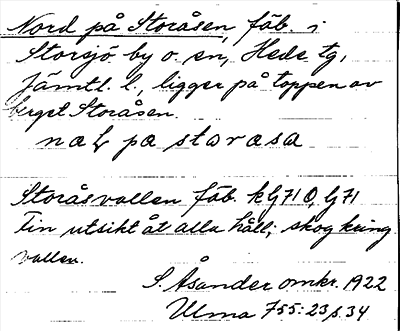 Nord på Storåsen, fäb. i
Storsjö by o. sn, Hede tg,
Jämtl. l., ligger på toppen av
berget Storåsen.
næ pæ storæsa
Storåsvallen fäb. kG71 O, G71
Fin utsikt åt alla håll; skog kring
vallen.
S. Åsander omkr. 1922
Ulma 755:23 s. 34